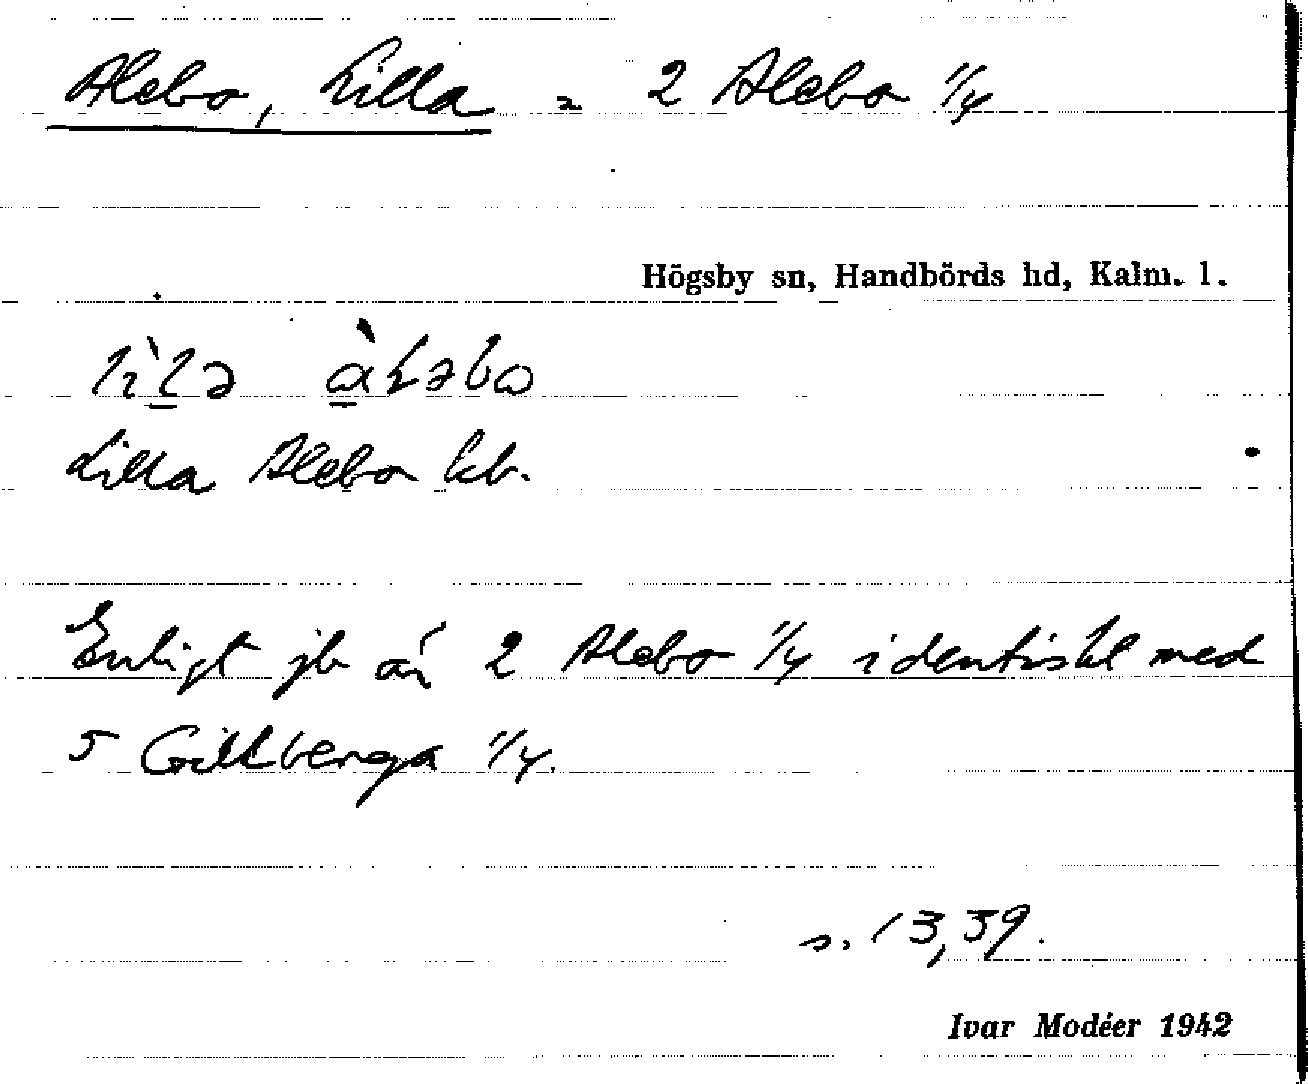 Alebo, Lilla = 2 Alebo 1/4
Högsby sn, Handbörds hd, Kalm. l.
Lilla Alebo kb.
Enligt jb är 2 Alebo 1/4 identiskt med
5 Gillberga 1/4.
s. 13, 39.
Ivar Modéer 1942